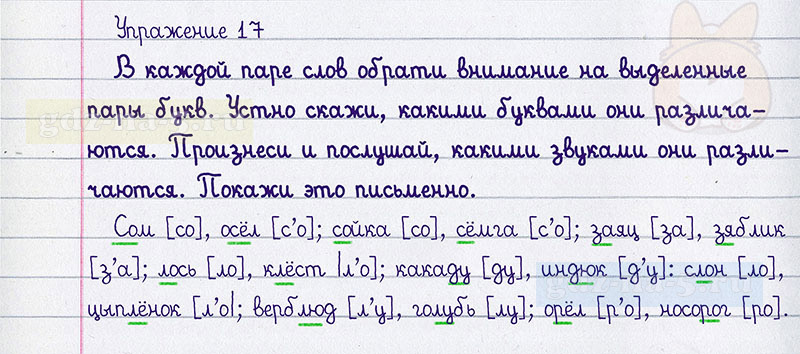 Упражнение 17
В каждой паре слов обрати внимание на выделенные
пары букв. Устно скажи, какими буквами они различа-
ются. Произнеси и послушай, какими звуками они разли-
чаются. Покажи это письменно.
Сом [со], осёл [с'о]; сойка [со], сёмга [с'о]; заяц [за], зяблик
[з'а]; лось [ло], клёст [л'о]; какаду [ду], индюк [д'у]: слон [ло],
цыплёнок [л'о]; верблюд [л'у], голубь [лу]; орёл [р'о], носорог [ро].